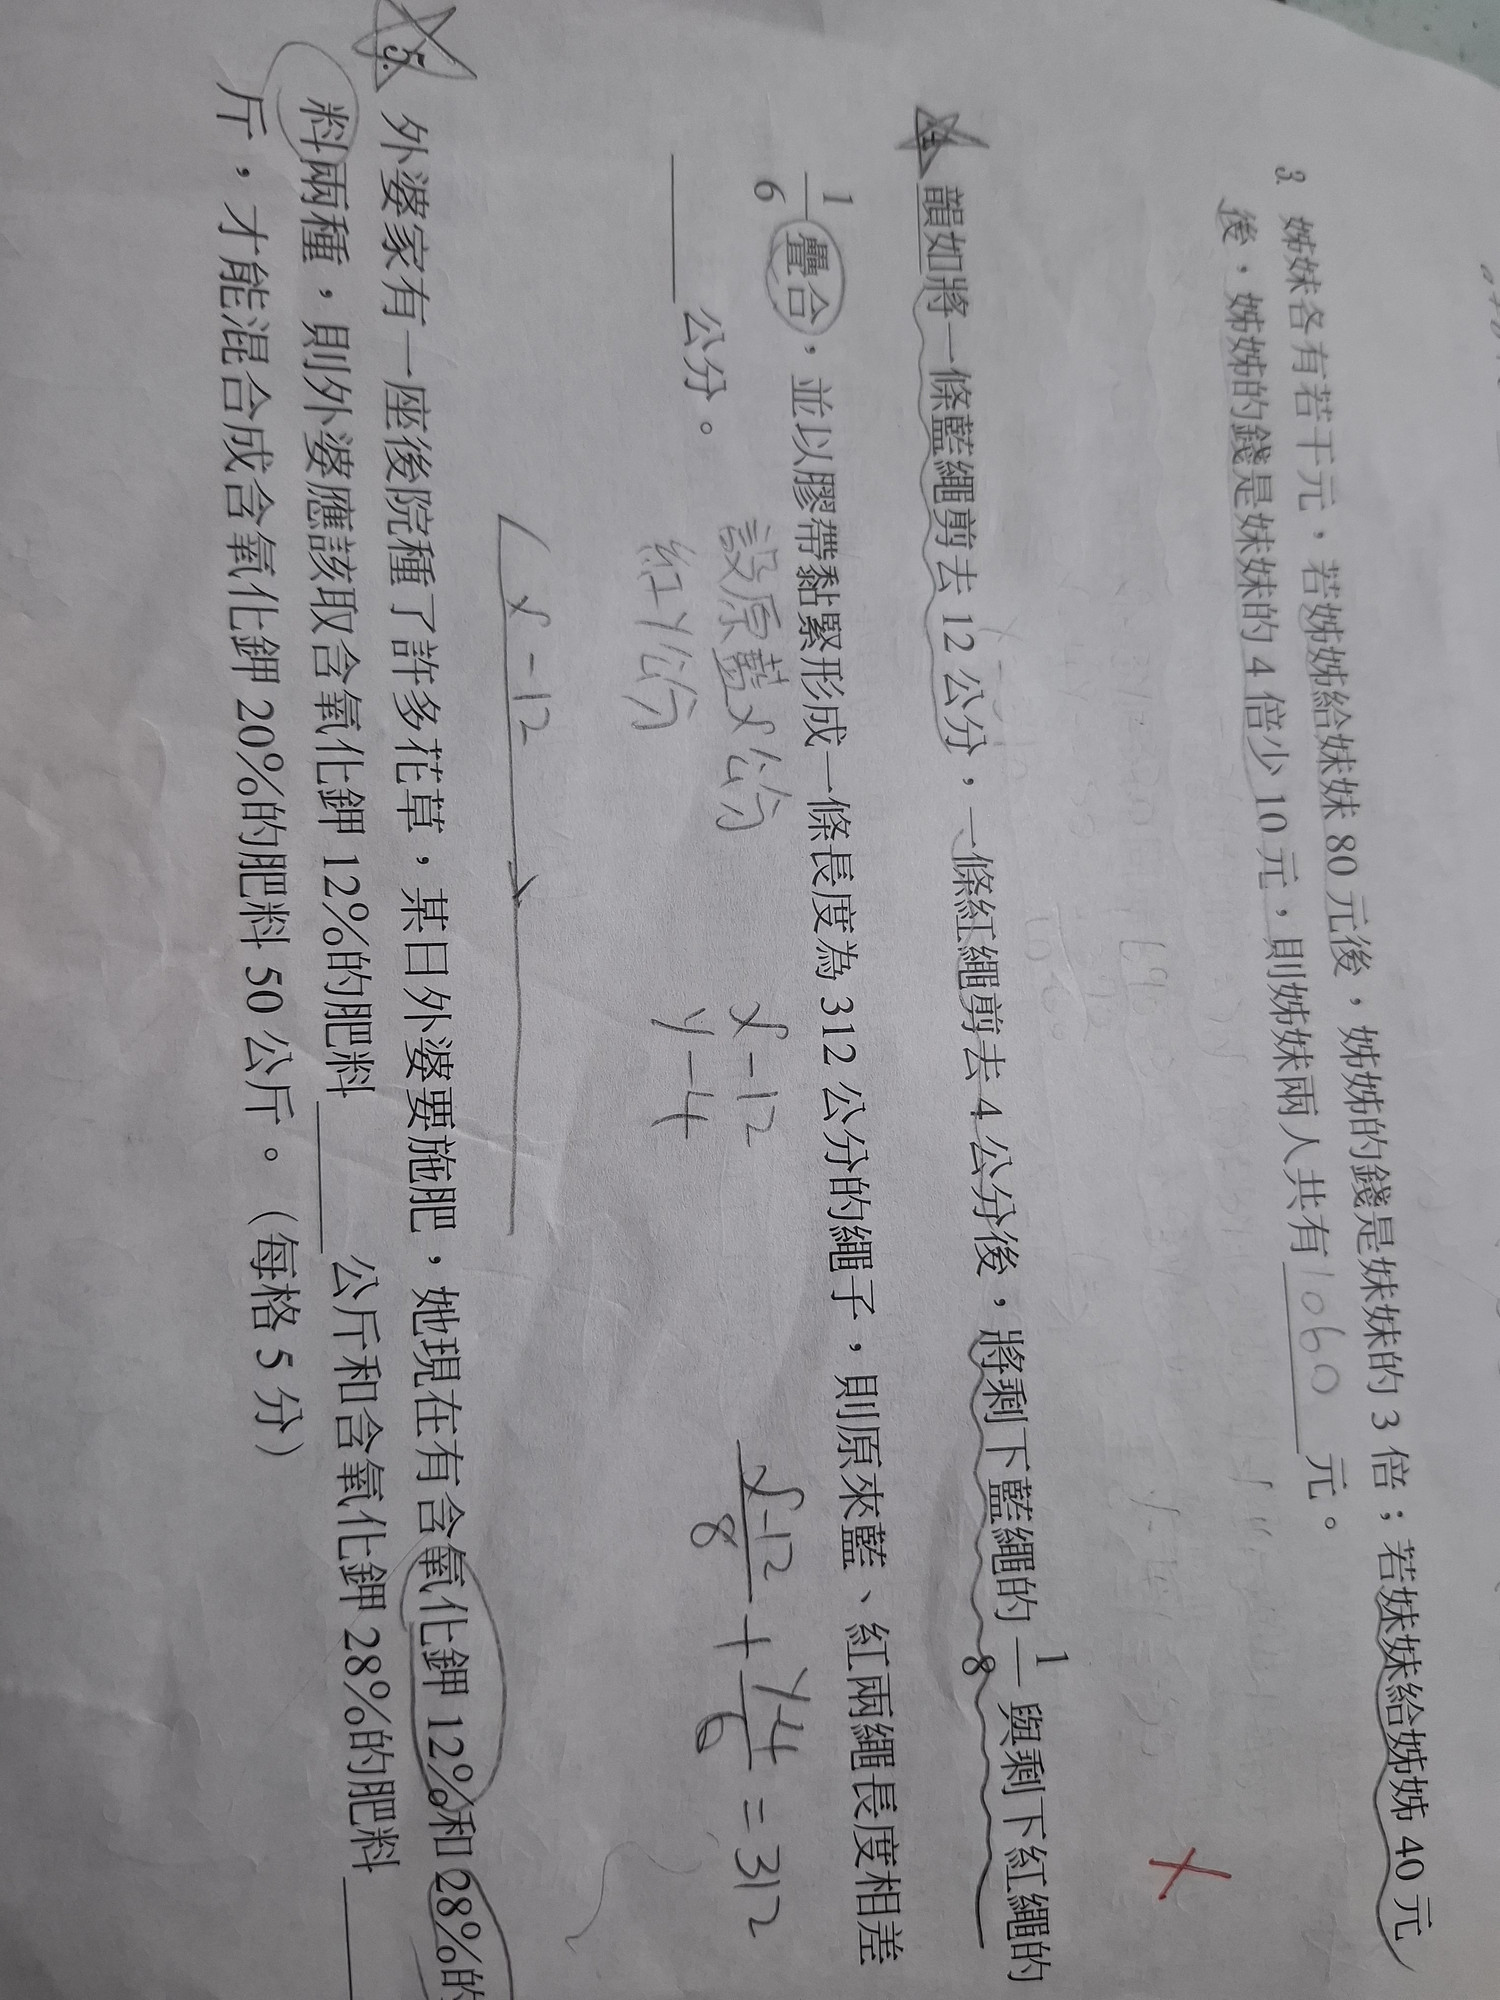 3. 姊妹各有若干元，若姊姊給妹妹 80 元後，姊姊的錢是妹妹的 3 倍；若妹妹給姊姊 40 元
後，姊姊的錢是妹妹的 4 倍少 10 元，則姊妹兩人共有 1060 元。
韻如將一條藍繩剪去 12 公分，一條紅繩剪去 4 公分後，將剩下藍繩的 1/8 與剩下紅繩的
1/6 疊合，並以膠帶黏緊形成一條長度為 312 公分的繩子，則原來藍、紅兩繩長度相差
公分。
設原藍x公分
紅y公分
x-12
y-4
x-12/8 + y-4/6 = 312
x-12
5. 外婆家有一座後院種了許多花草，某日外婆要施肥，她現在有含氧化鉀 12%和 28%的
料兩種，則外婆應該取含氧化鉀 12%的肥料 公斤和含氧化鉀 28%的肥料
斤，才能混合成含氧化鉀 20%的肥料 50 公斤。（每格 5 分）